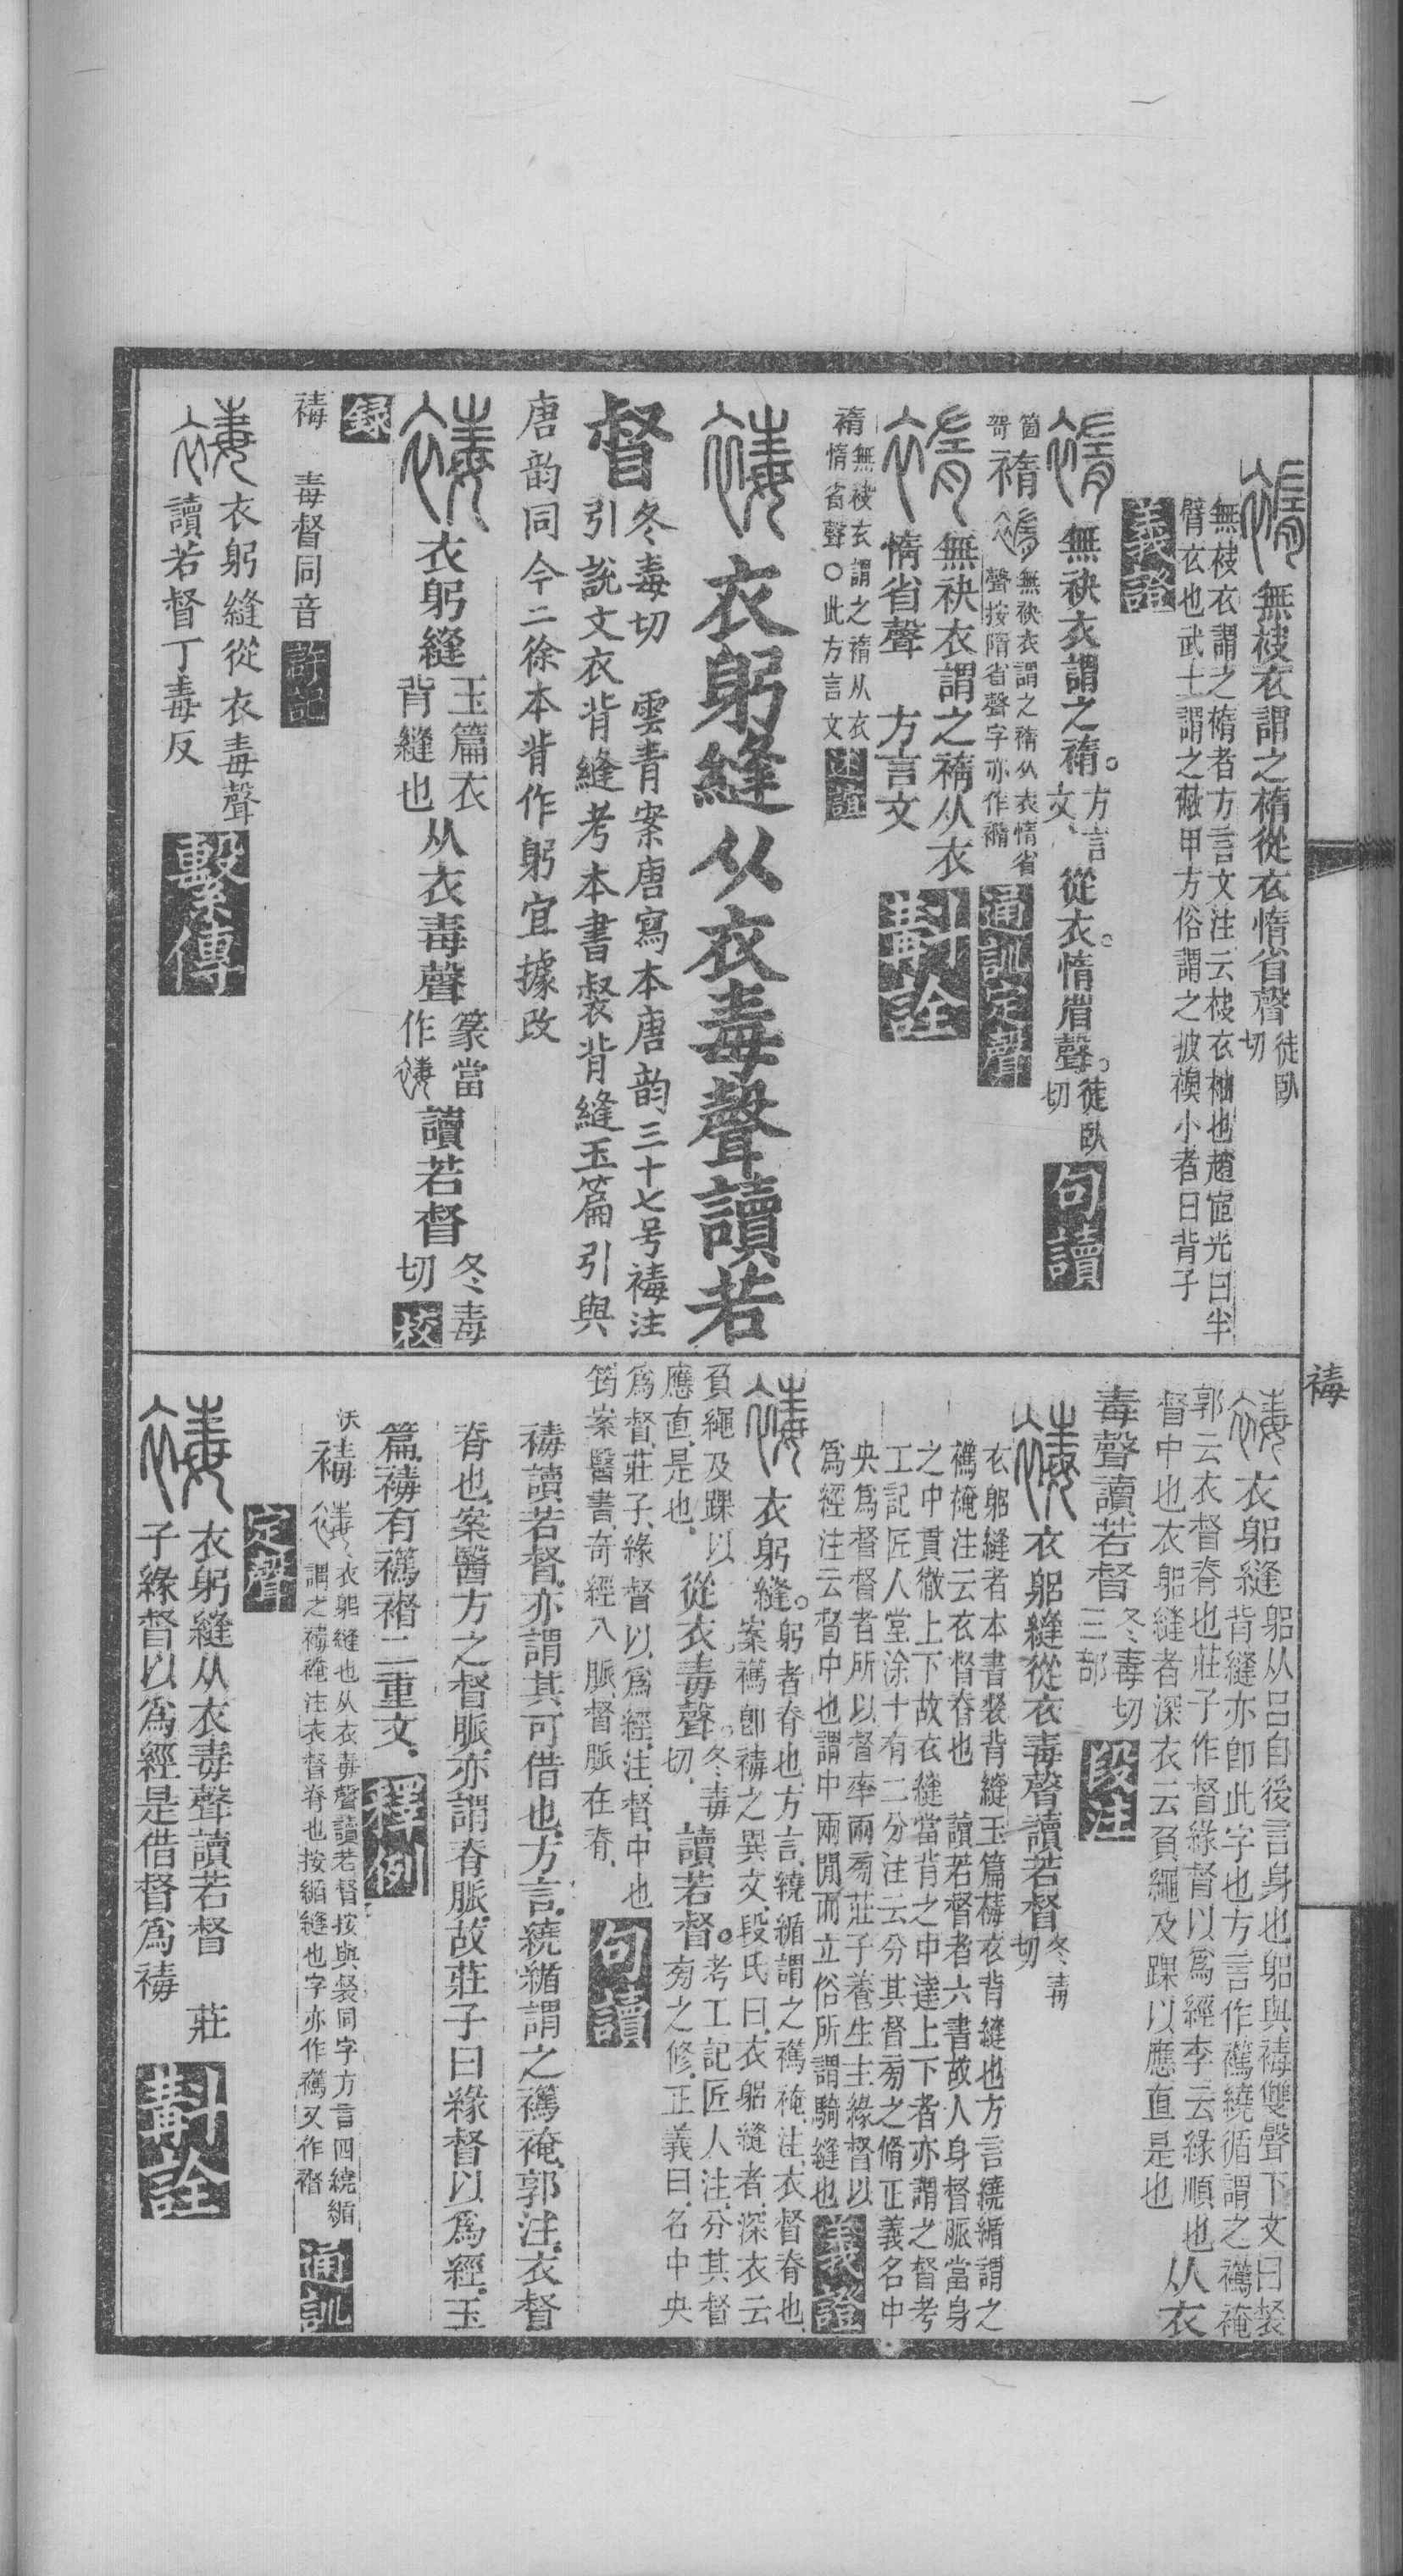 無袂衣謂之𧛾從衣惰省聲徒臥切
無袂衣謂之𧛾者方言文注云袂衣袖也趙宧光曰半
臂衣也武士謂之蔽甲方俗謂之披襖小者曰背子
義證
無袂衣謂之𧛾。方言文、從衣。惰省聲。徒臥切
句讀
𧛾
無袂衣謂之𧛾从衣惰省
聲按隋省聲字亦作
通訓定聲
無袂衣謂之𧛾从衣
惰省聲　方言文
斠詮
無袂衣謂之𧛾从衣
惰省聲○此方言文
述誼
衣躬縫从衣毒聲讀若
督
冬毒切　雲青案唐寫本唐韵三十七号裻注
引說文衣背縫考本書裻背縫玉篇引與
唐韵同今二徐本背作躬宜據改
衣躬縫玉篇衣背縫也从衣毒聲篆當作
讀若督冬毒切
校
錄
𧝴　毒督同音
許記
衣躬縫從衣毒聲
讀若督丁毒反
繫傳
𧝴
衣躳縫躳从呂自後言身也躳與𧝴雙聲下文曰裻
背縫亦卽此字也方言作襦繞循謂之襦裺
郭云衣督脊也莊子作督緣督以爲經李云緣順也
督中也衣躳縫者深衣云負繩及踝以應直是也
从衣
毒聲讀若督冬毒切三部
段注
衣躳縫從衣毒聲讀若督冬毒切
衣躳縫者本書裻背縫玉篇𧝴衣背縫也方言繞緧謂之
裺注云衣督脊也　讀若督者六書故人身督脈當身
之中貫徹上下故衣縫當背之中達上下者亦謂之督考
工記匠人堂涂十有二分注云分其督旁之脩正義名中
央爲督督者所以督率兩旁莊子養生主緣督以
爲經注云督中也謂中兩閒而立俗所謂騎縫也
義證
衣躬縫。躬者脊也、方言、繞緧謂之裺、注、衣督脊也、
案卽𧝴之異文、段氏曰、衣躳縫者、深衣云
負繩及踝以
應直、是也、
從衣毒聲。冬毒切、讀若督。考工記匠人注、分其督
旁之修、正義曰、名中央
爲督、莊子、緣督以爲經、注、督、中也
筠案醫書、奇經八脈、督脈在脊、
句讀
𧝴讀若督、亦謂其可借也、方言、繞緧謂之裺、郭注、衣督
脊也、案醫方之督脈、亦謂脊脈、故莊子曰緣督以爲經、玉
篇、𧝴有二重文、
釋例
沃
𧝴
衣躳縫也从衣毒聲讀若督按與裻同字方言四繞緧
謂之裺注衣督脊也按緧縫也字亦作又作
通訓
定聲
衣躬縫从衣毒聲讀若督　莊
子緣督以爲經是借督爲𧝴
斠詮